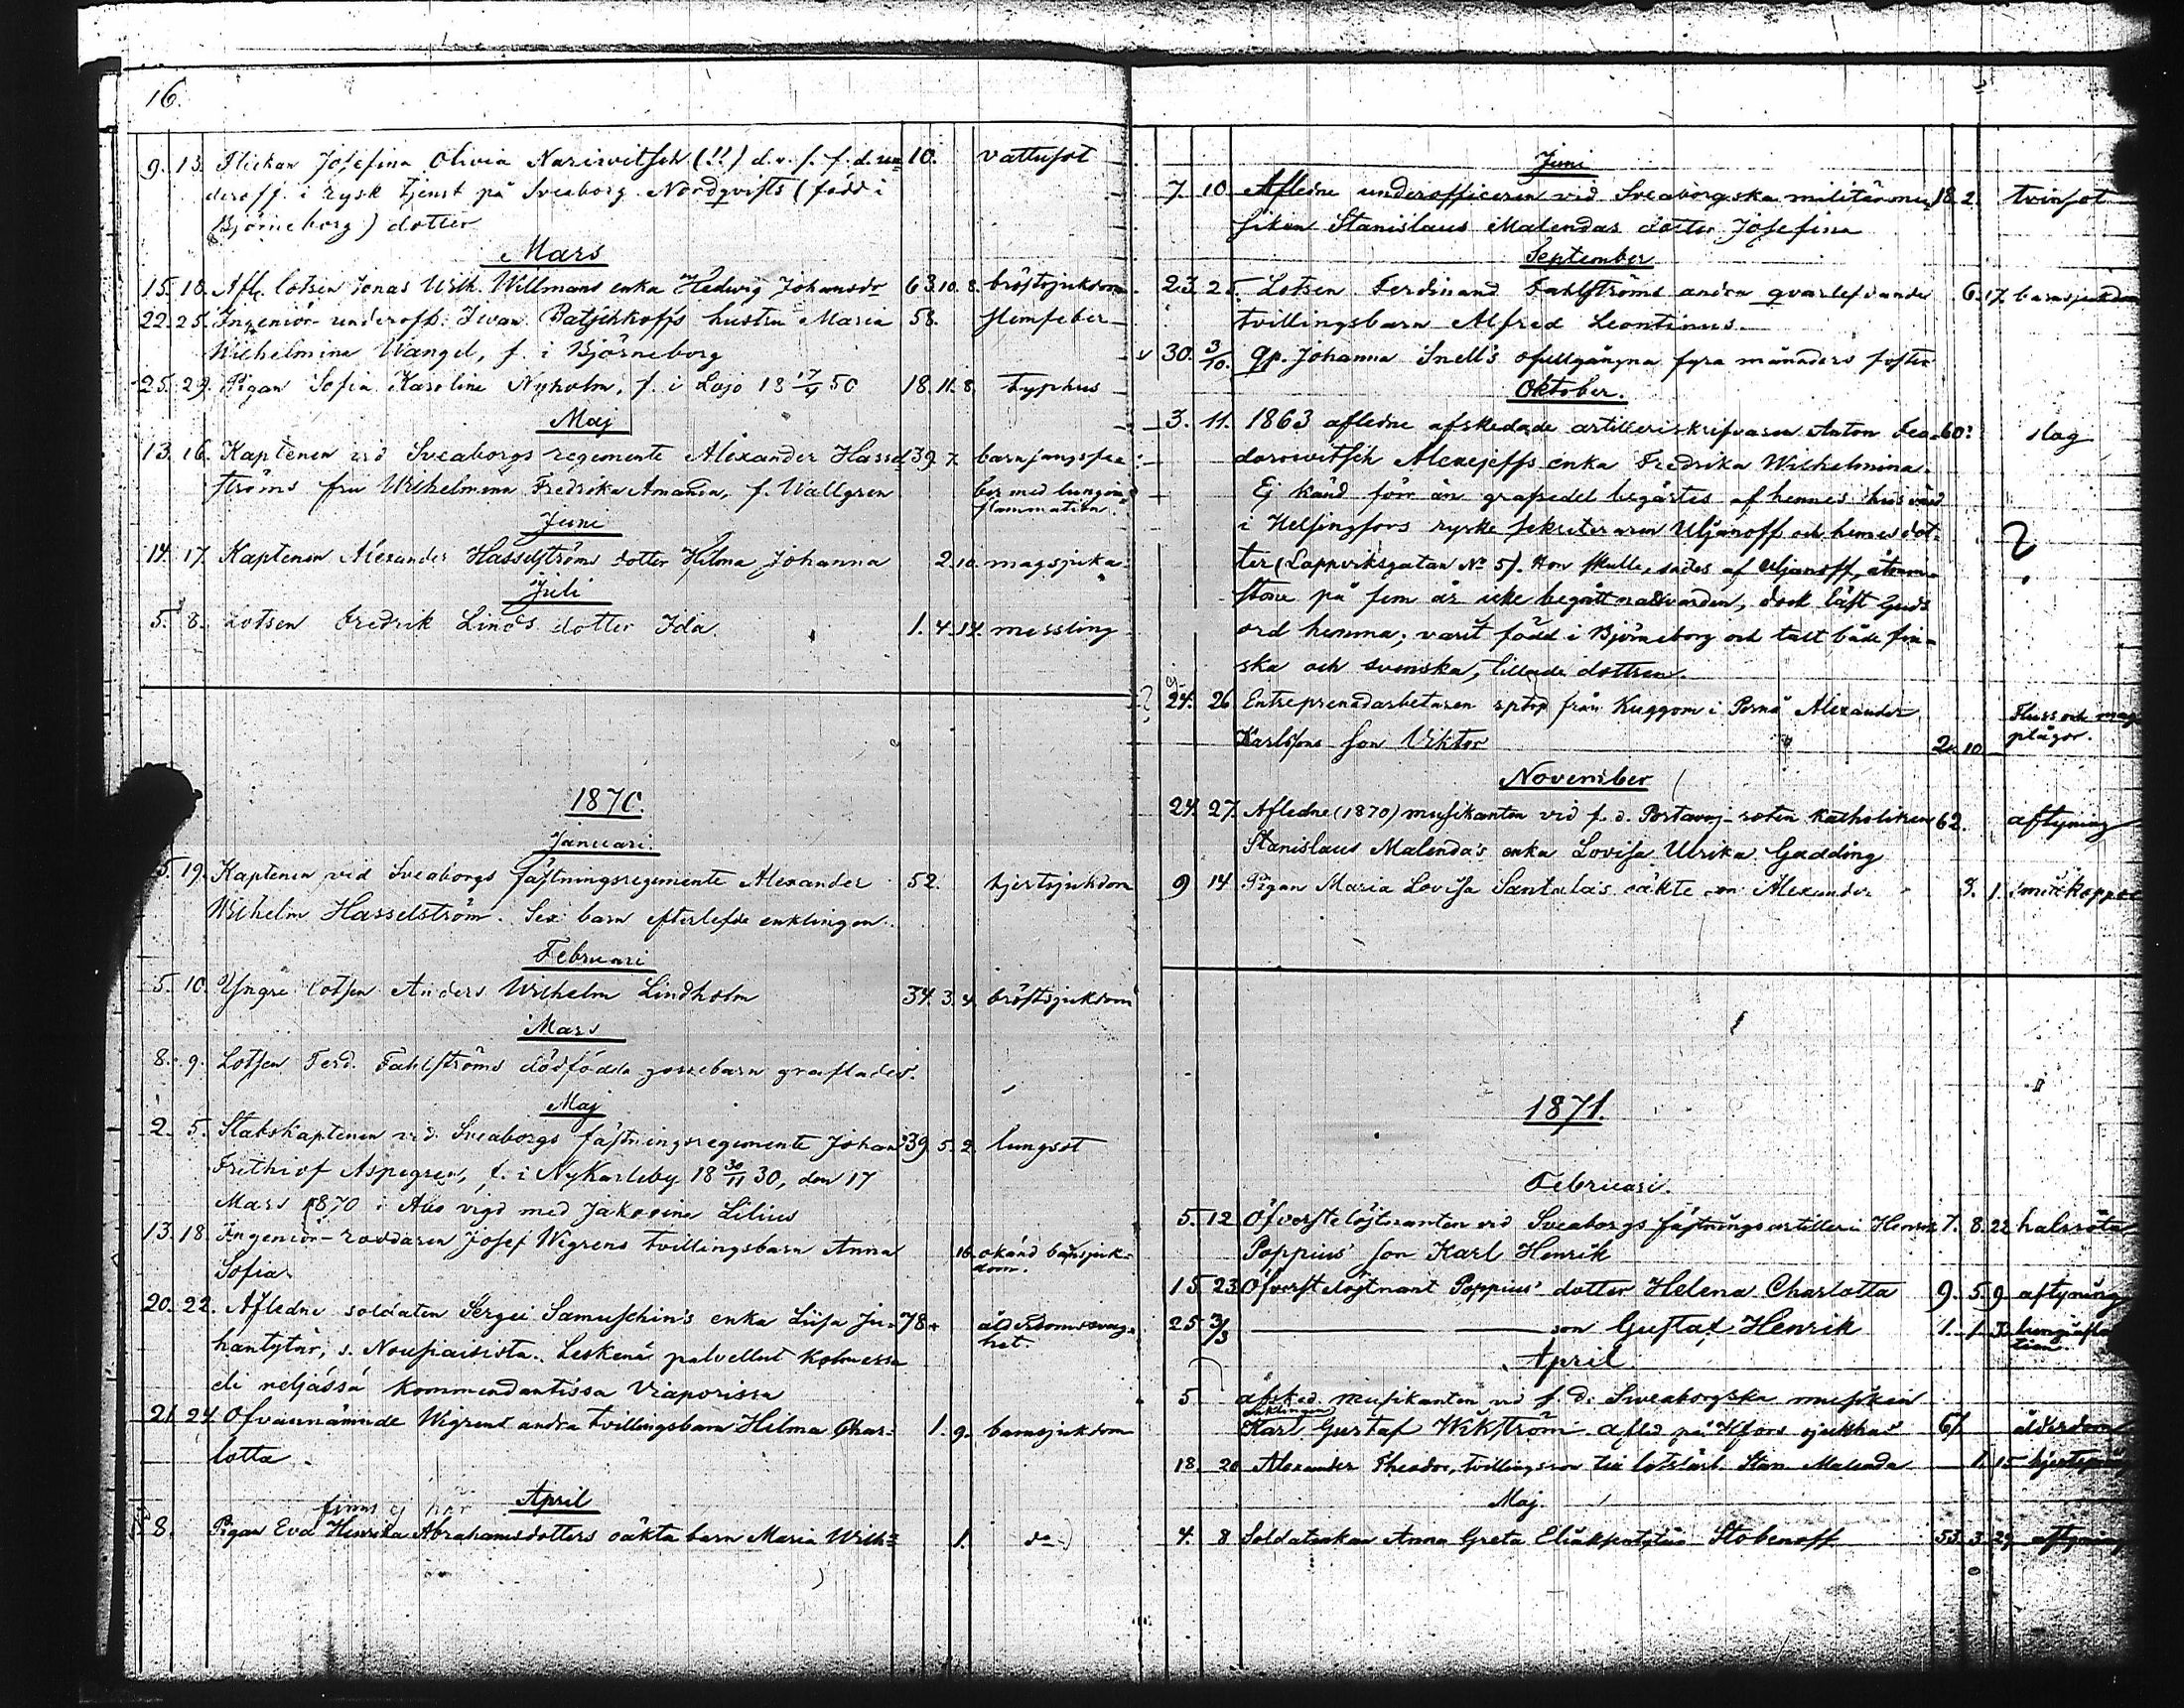 16.
9. 13. Flickan Josefina Olivia Narisvitsch (!!) d.v.s. f.d. un- 10. vattusot
deroff. i rysk tjenst på Sveaborg Nordqvists (född i
Björneborg) dotter
Mars
15. 18. Afl. lotsen Jonas Wilh. Willmans enka Hedwig Johansdr 63. 10. 8. bröstsjukdom
22. 25. Ingeniör-underoff. Iwan Batschkoffs hustru Maria 58. slemfeber
Wilhelmina Wangel, f. i Björneborg
25. 29. Pigan Sofia Karolina Nyholm, f. i Lojo 18 17/4 50 18. 11. 8. typhus
Maj
13. 16. Kaptenen vid Sveaborgs regemente Alexander Hassel- 39. 7. barnsängsfe-
ströms fru Wilhelmina Fredrika Amanda, f. Wallgren ber med lungin-
flammation.
Juni
14. 17. Kaptenen Alexander Hasselströms dotter Hilma Johanna 2. 10. magsjuka
Juli
5. 8. Lotsen Fredrik Linds dotter Ida. 1. 4. 14. messling
1870.
Januari.
15. 19. Kaptenen vid Sveaborgs fästningsregemente Alexander 52. hjertsjukdom
Wilhelm Hasselström. Sex barn efterlefde enklingen.
Februari
5. 10. Yngre lotsen Anders Wilhelm Lindholm 34. 3. 4. bröstsjukdom
Mars
8. 9. Lotsen Ferd. Fahlströms dödfödda gossebarn graflades.
Maj
2. 5. Stabskaptenen vid Sveaborgs fästningsregemente Johan 39. 5. 2. lungsot
Frithiof Aspegren, f. i Nykarleby 18 30/11 30, den 17
Mars 1870 i Åbo vigd med Jakobina Lilius
13. 18. Ingeniör-roddaren Josef Wigrens tvillingsbarn Anna 16. okänd barnsjuk-
Sofia. dom.
20. 22. Afledne soldaten Sergei Samuschin's enka Liisa Ju- 78. ålderdomssvag-
hantytär, s. Nousiaisista. Leskenä palvellut kolmessa het.
eli neljässä kommendantissa Viaporissa
21. 24. Ofvannämnde Wigrens andra tvillingsbarn Hilma Char- 1. 9. barnsjukdom
lotta.
finns ej här April
8. Pigan Eva Henrika Abrahamsdotters oäkta barn Maria Wilh- 1. do
Juni
7. 10. Afledne underofficeren vid Sveaborgska militärmu- 18. 2. tvinsot
siken Stanislaus Malendas dotter Josefina
September
23. 25. Lotsen Ferdinand Fahlströms andra qvarlefvande 6. 17. barnsjukdom
tvillingsbarn Alfred Leontinus.
30. 3/10. qp. Johanna Snell's ofullgångna fyra månaders foster
Oktober.
3. 11. 1863 afledne afskedade artilleriskrifvaren Anton Feo- 60? slag
dorowitsch Alexejeffs enka Fredrika Wilhelmina.
Ej känd förr än grafsedel begärtes af hennes husvärd
i Helsingfors ryske sekreteraren Uljanoff och hennes dot-
ter (Lappviksgatan No 5). Hon skulle, sades af Uljanoff, åtmin-
stone på fem år icke begått nattvarden, dock läst Guds
ord hemma; varit född i Björneborg och talt både fin-
ska och svenska, tillade dottren.
?
24. 26 Entreprenadarbetaren sptorp från Kuggom i Pernå Alexander Fluss och mag-
Karlssons son Viktor 2. 10 plågor.
November
24. 27. Afledne (1870) musikanten vid f.d. Portavoj-roten katholiken 62. aftyning
Stanislaus Malenda's enka Lovisa Ulrika Gadding
9 14 Pigan Maria Lovisa Santala's oäkte son Alexander 3. 1. småkoppor
1871.
Februari.
5. 12 Öfverstelöjtnanten vid Sveaborgs fästningsartilleri Henrik 7. 8. 22 halsröta
Poppius' son Karl Henrik
15 23 Öfverstelöjtnant Poppius' dotter Helena Charlotta 9. 5. 9 aftyning
25 3/3 son Gustaf Henrik 1. 1. 3.
April.
5 afsked. musikanten vid f.d. Sweaborgska musiken
enklingen
Karl Gustaf Wikström afled på Hfors sjukhus 61 ålderdom
18. 20 Alexander Theodor, tvillingsson till lotslärl. Stan. Malenda 1. 15
Maj.
4. 8 Soldatenkan Anna Greta Stobenoff 53. 3. 29 aftyning